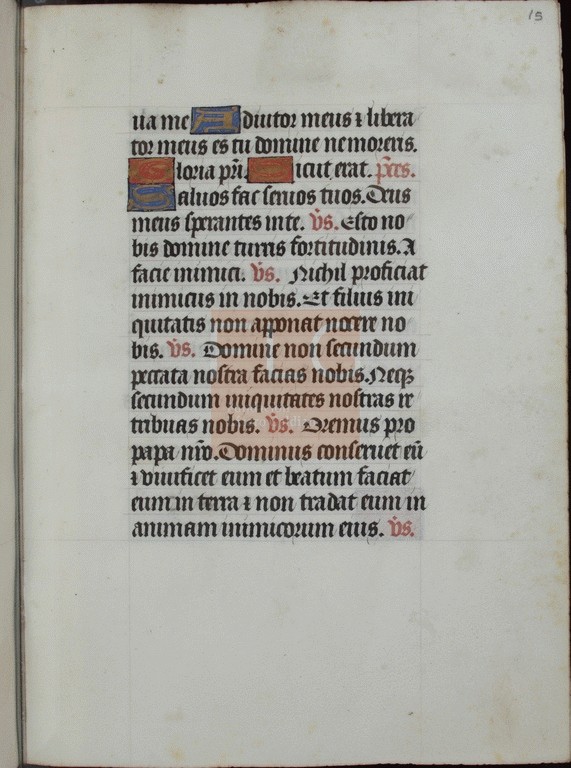 15
ua me Adiutor meus ⁊ libera
tor meus es tu domine ne moreris.
Gloria pri. Sicut erat. p̄ces.
Saluos fac seruos tuos. Deus
meus sperantes in te. v̄s. Esto no
bis domine turris fortitudinis. A
facie inimici. v̄s. Nichil proficiat
inimicus in nobis. Et filius ini
quitatis non apponat nocere no
bis. v̄s. Domine non secundum
peccata nostra facias nobis. Neqꝫ
secundum iniquitates nostras re
tribuas nobis. v̄s. Oremus pro
papa nr̄o. Dominus conseruet eū
⁊ viuificet eum et beatum faciat
eum in terra ⁊ non tradat eum in
animam inimicorum eius. v̄s.